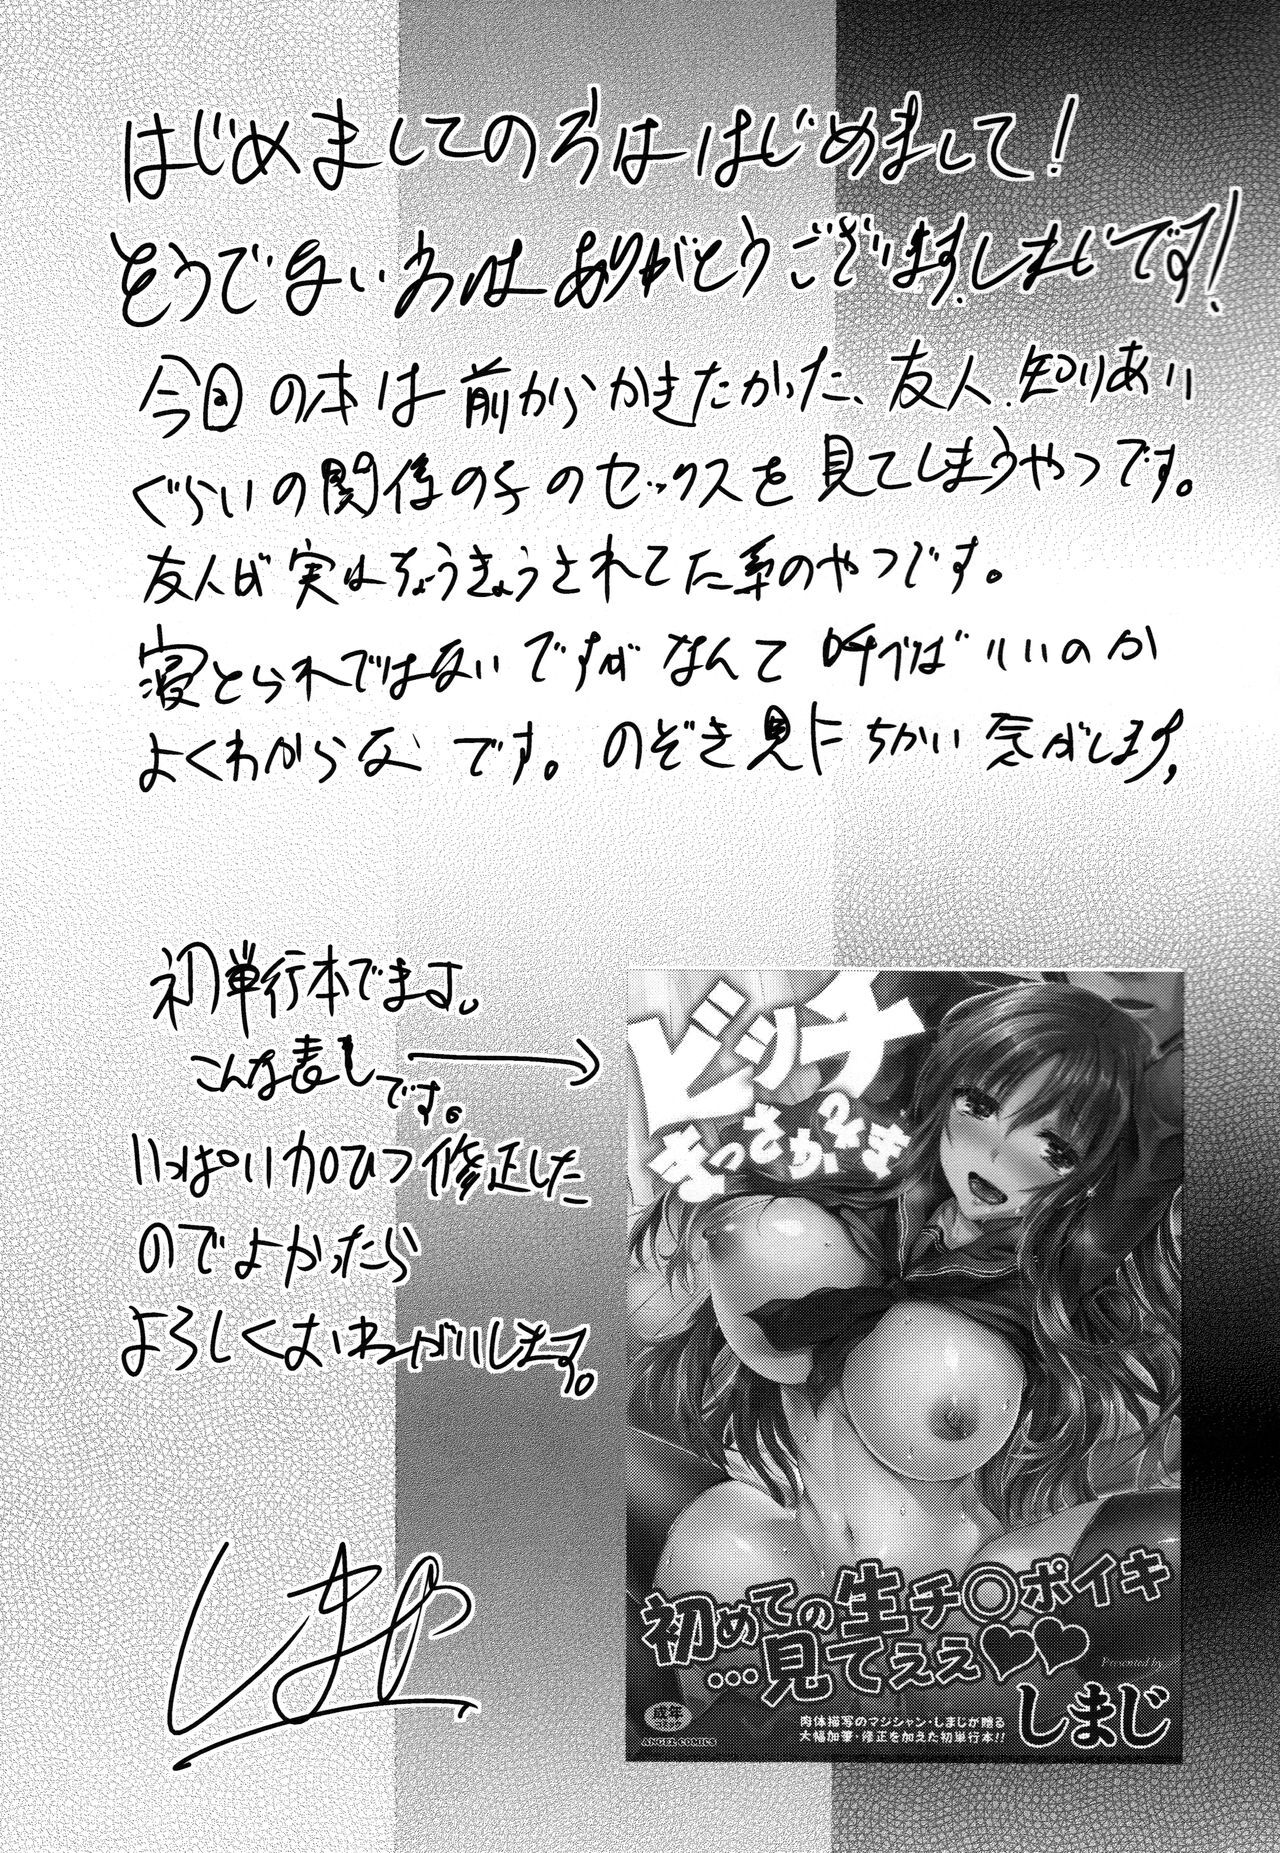 はじめましての方ははじめまして!
そうでない方はありがとうございます。しまじです!
今回の本は前からかきたかった、友人、知りあい
ぐらいの関係の子のセックスを見てしまうやつです。
友人が実はちょうきょうされてた系のやつです。
寝とられではないですがなんて呼べばいいのか
よくわからないです。のぞき見にちかい気がします。
初単行本でます。
こんな表しです。
いっぱい加ひつ修正した
のでよかったら
よろしくおねがいします。
しまじ
ビッチ
まっさかさま
初めての生チ〇ポイキ
…見てぇぇ♥♥
Presented by
しまじ
成年
コミック
ANGEL COMICS
肉体描写のマジシャン・しまじが贈る
大幅加筆・修正を加えた初単行本!!